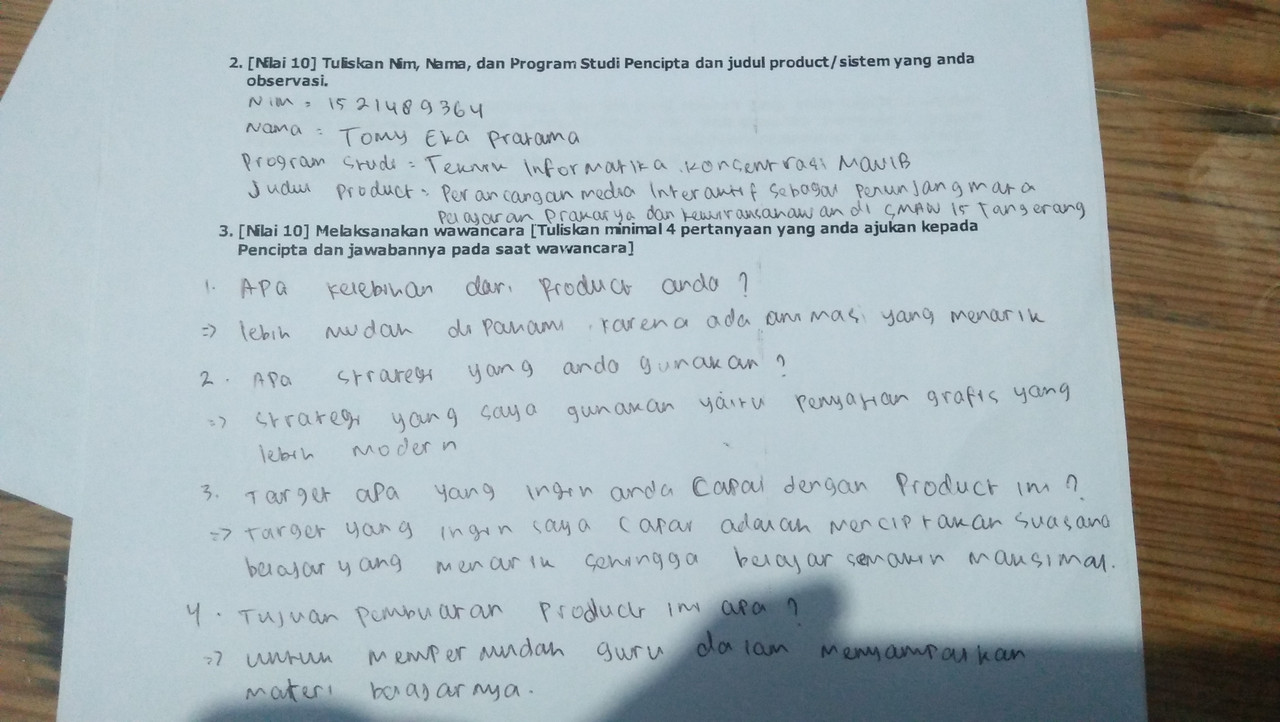 2. [Nilai 10] Tuliskan Nim, Nama, dan Program Studi Pencipta dan judul product/sistem yang anda
observasi.
Nim = 1521489364
Nama = Tomy Eka Pratama
Program Studi = Teknik Informatika konsentrasi MAVIB
Judul Product = Perancangan media Interaktif sebagai Penunjang mata
Pelajaran Prakarya dan kewirausahawan di SMAN 15 Tangerang
3. [Nilai 10] Melaksanakan wawancara [Tuliskan minimal 4 pertanyaan yang anda ajukan kepada
Pencipta dan jawabannya pada saat wawancara]
1. APA kelebihan dari Product anda ?
=> lebih mudah di Pahami karena ada animasi yang menarik
2. APa strategi yang anda gunakan ?
=> strategi yang saya gunakan yaitu Penyajian grafis yang
lebih modern
3. Target apa yang ingin anda Capai dengan Product ini ?
=> Target yang ingin saya Capai adalah menciptakan suasana
belajar yang menarik sehingga belajar semakin maksimal.
4. Tujuan Pembuatan Product ini apa ?
=> untuk mempermudah guru dalam menyampaikan
materi belajarnya.